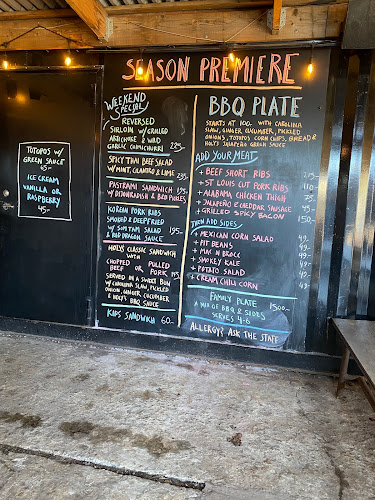 SEASON PREMIERE
WEEKEND
SPECIAL
REVERSED
SIRLOIN W/GRILLED
ARTICHOKE & WILD
GARLIC CHIMICHURRI 225-
SPICY THAI BEEF SALAD
W/MINT, CILANTRO & LIME 235-
PASTRAMI SANDWICH 195-
W/ DIJONKRAUT & BBQ PICKLES
KOREAN PORK RIBS
SMOKED & DEEPFRIED
W/ SOM TAM SALAD 195-
& BBQ DRAGON SAUCE
HOLYS CLASSIC SANDWICH
WITH
CHOPPED PULLED
BEEF OR PORK 145
SERVED IN A SWEET BUN
W/ CAROLINA SLAW, PICKLED
ONION, GINGER CUCUMBER
& HOLY'S BBQ SAUCE
KIDS SANDWICH 60-
BBQ PLATE
STARTS AT 100.- WITH CAROLINA
SLAW, GINGER CUCUMBER, PICKLED
ONIONS, TOTOPOS CORN CHIPS, BREAD &
HOLYS JALAPEÑO GREEN SAUCE
ADD YOUR MEAT
+ BEEF SHORT RIBS 215
+ ST LOUIS CUT PORK RIBS 110
+ ALABAMA CHICKEN THIGH 75
+ JALAPEÑO & CHEDDAR SAUSAGE 45-
+ GRILLED SPICY BACON 150-
THEN ADD SIDES
+ MEXICAN CORN SALAD 49-
+ PIT BEANS 49-
+ MAC N BROCC 49-
+ SMOKEY KALE 49-
+ POTATO SALAD 49-
+ CREAM CHILI CORN 49-
FAMILY PLATE 1500-
A MIX OF BBQ & SIDES
SERVES 4-6
ALLERGY? ASK THE STAFF
TOTOPOS W/
GREEN SAUCE
45-
ICE CREAM
VANILLA OR
RASPBERRY
45-